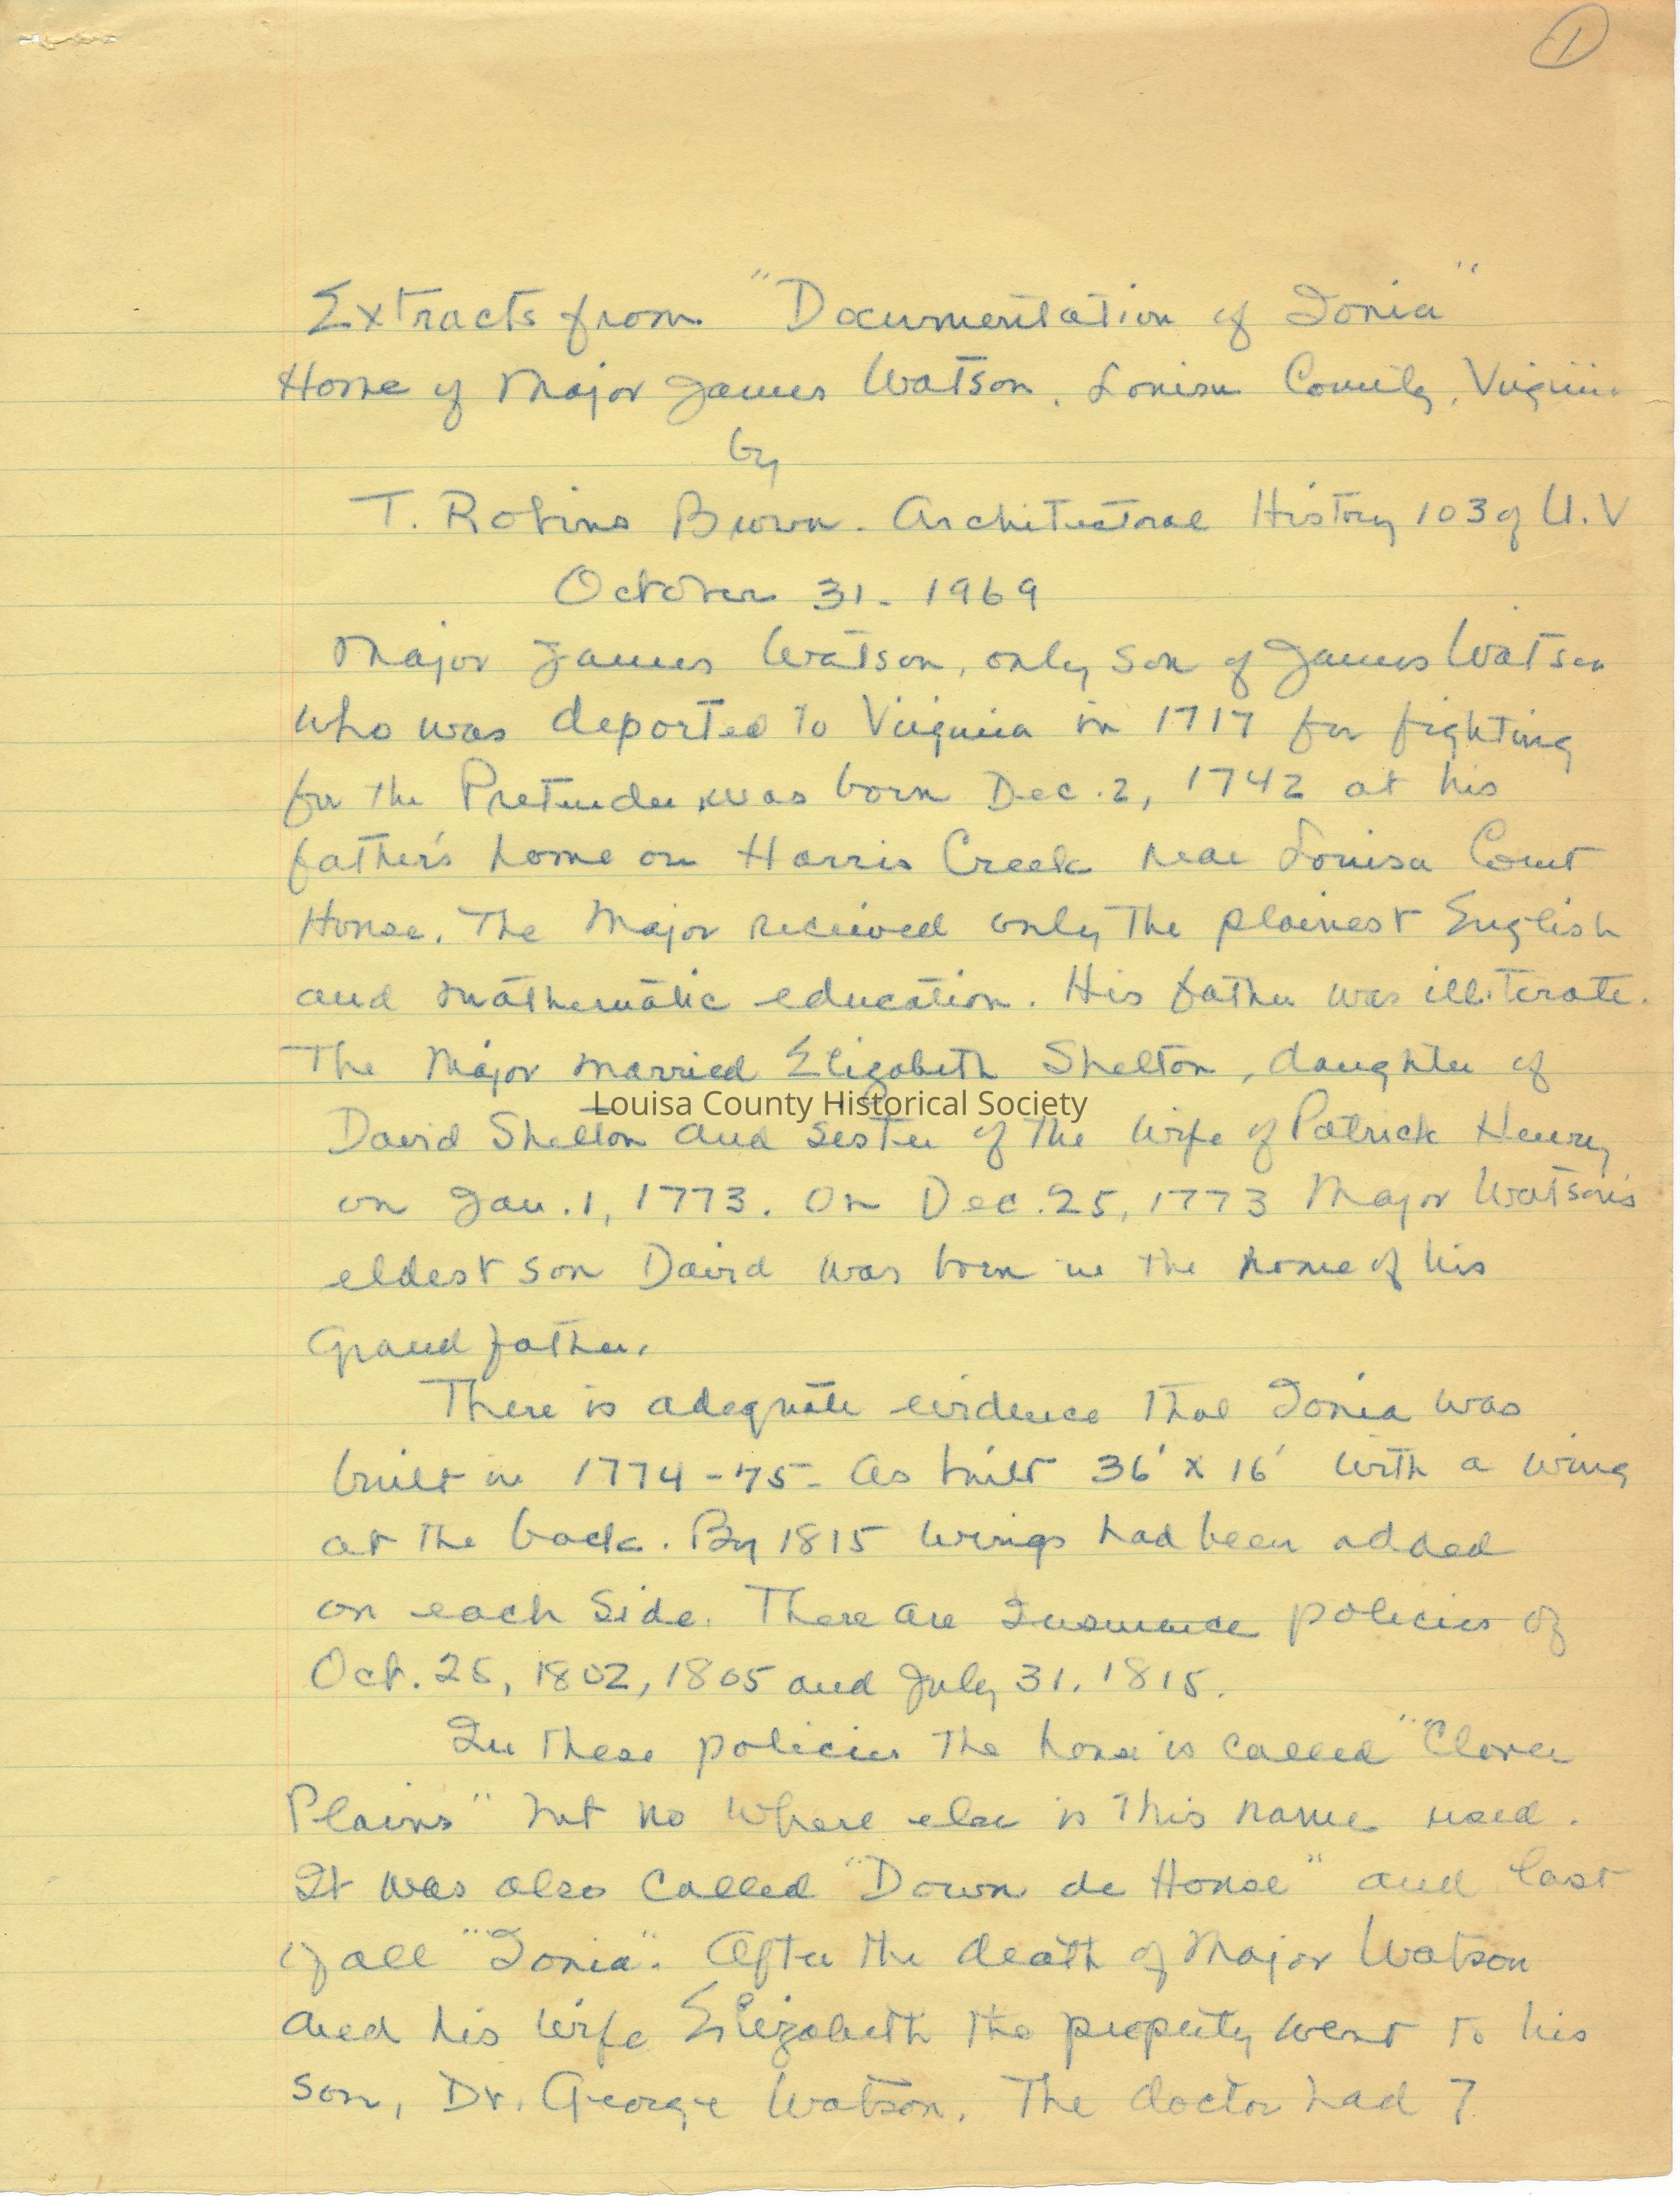 1
Extracts from "Documentation of Ionia"
Home of Major James Watson, Louisa County, Virginia
by
T. Robins Brown. Architectural History 103 of U.V
October 31. 1969
Major James Watson, only son of James Watson
who was deported to Virginia in 1717 for fighting
for the Pretender was born Dec. 2, 1742 at his
father's home on Harris Creek near Louisa Court
House. The Major received only the plainest English
and mathematic education. His father was illiterate.
The Major married Elizabeth Shelton, daughter of
Louisa County Historical Society
David Shelton and sister of the wife of Patrick Henry
on Jan. 1, 1773. On Dec. 25, 1773 Major Watson's
eldest son David was born in the home of his
Grandfather.
There is adequate evidence that Ionia was
built in 1774-75- As built 36' x 16' with a wing
at the back. By 1815 wings had been added
on each side. There are Insurance policies of
Oct. 25, 1802, 1805 and July 31, 1815.
In these policies the house is called "Clover
Plains" but no where else is this name used.
It was also called "Down de House" and last
of all "Ionia". After the death of Major Watson
and his wife Elizabeth the property went to his
son, Dr. George Watson. The doctor had 7